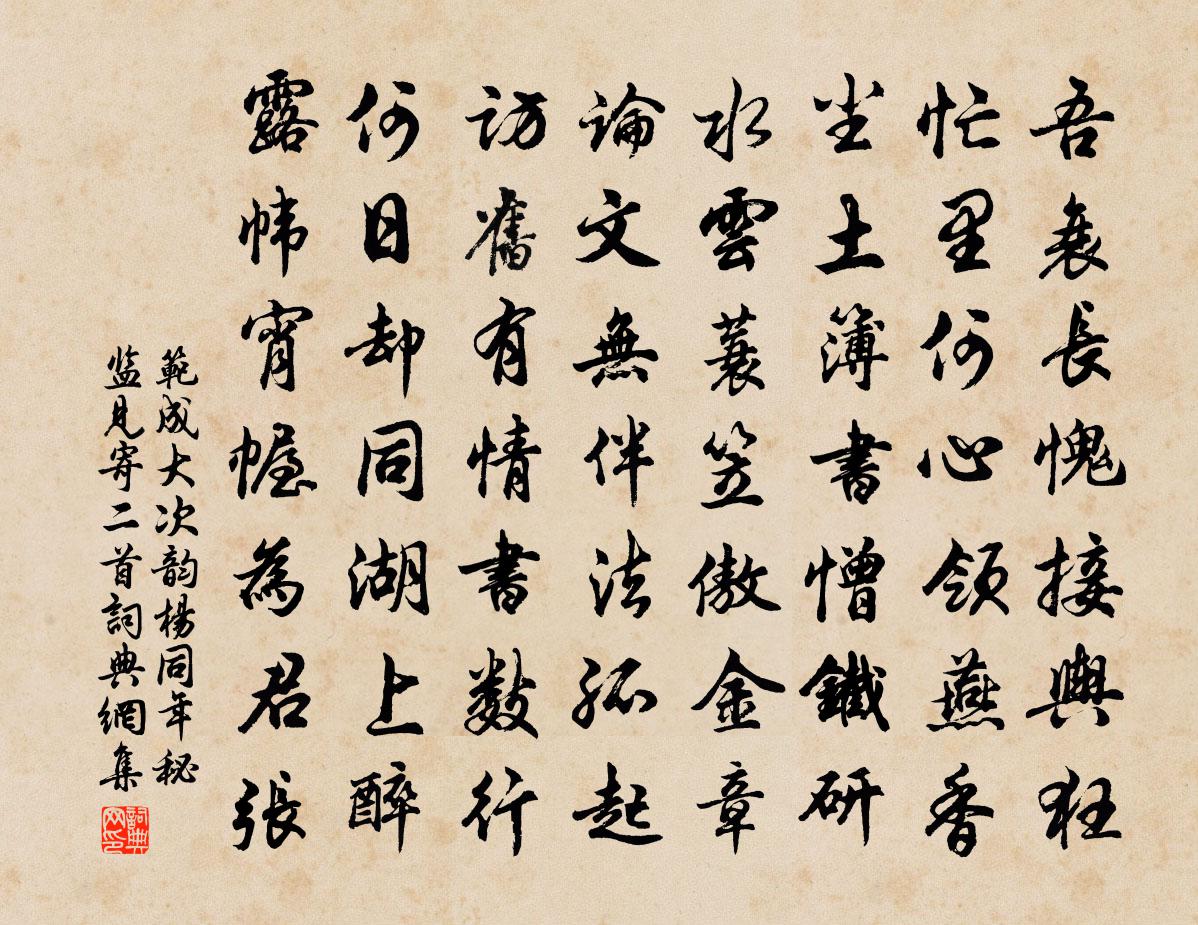 吾衰長愧接輿狂
忙里何心領燕香
坐土簿書憎鐵研
水雲蓑笠傲金章
論文無伴法孤起
訪舊有情書數行
何日却同湖上醉
露幃宵幄為君張
範成大次韵楊同年秘
監見寄二首詞典網集
詞典
网印